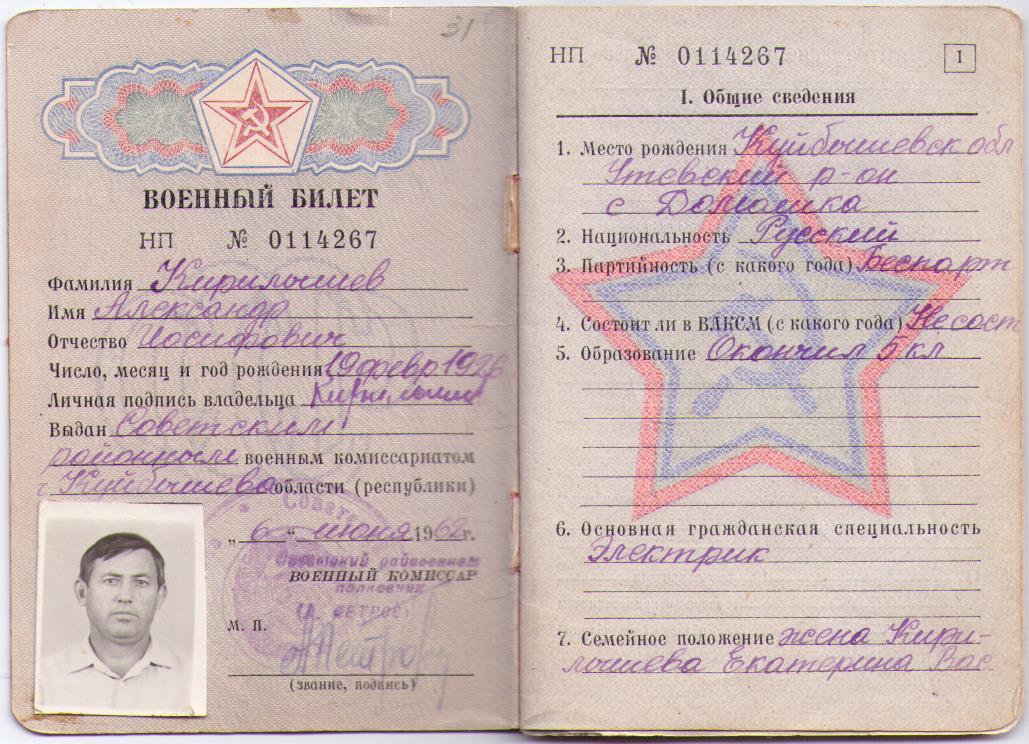 31
ВОЕННЫЙ БИЛЕТ
НП № 0114267
Фамилия Кирилычев
Имя Александр
Отчество Иосифович
Число, месяц и год рождения 19 февр 1926
Личная подпись владельца
Выдан Советским
районным военным комиссариатом
г Куйбышева области (республики)
„ 6 “ июня 1962 г.
Советский райвоенком
ВОЕННЫЙ КОМИССАР
полковник
(А. ПЕТРОВ)
М. П.
(звание, подпись)
НП № 0114267
1
I. Общие сведения
1. Место рождения Куйбышевск обл
Утевский р-он
с
2. Национальность Русский
3. Партийность (с какого года) Беспарт
4. Состоит ли в ВЛКСМ (с какого года) Несост
5. Образование Окончил 5 кл
6. Основная гражданская специальность
Электрик
7. Семейное положение жена Кири-
лычева Екатерина Вас